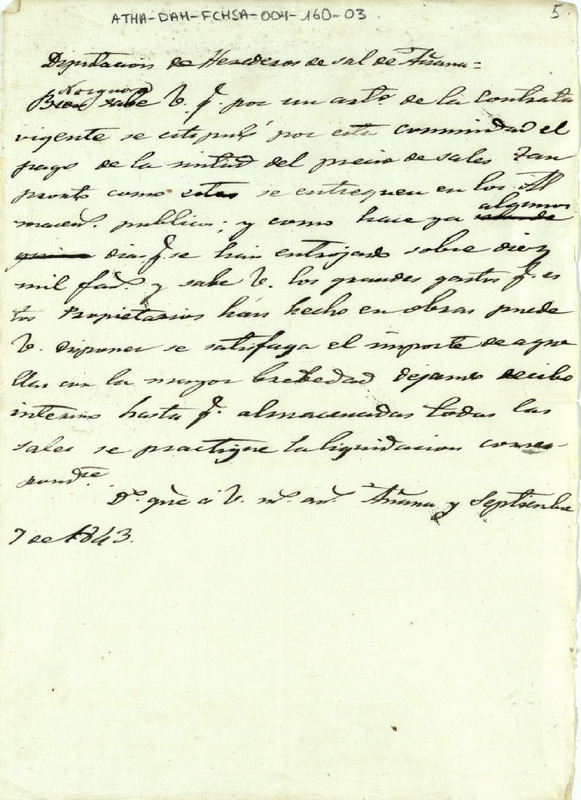 ATHA-DAH-FCHSA-004-160-03
5.
Diputacion de Herederos de sal de Añana=
No ignora
Bien sabe V. q. por un arto de la contrata
vigente se estipuló por esta comunidad el
pago de la mitad del precio de sales tan
pronto como estas se entreguen en los Al
algunos
macens. publicos; y como hace ya
dias q. se han entrojado sobre diez
mil fans. y sabe V. los grandes gastos q. es
tos Propietarios han hecho en obras puede
V. disponer se satisfaga el importe de aque
llas con la mayor brebedad dejamos recibo
interino hasta q. almacenadas todas las
sales se practique la liquidacion corres-
pondte
Ds. gue á V. ms. as. Añana y Septiembre
7 de 1843.